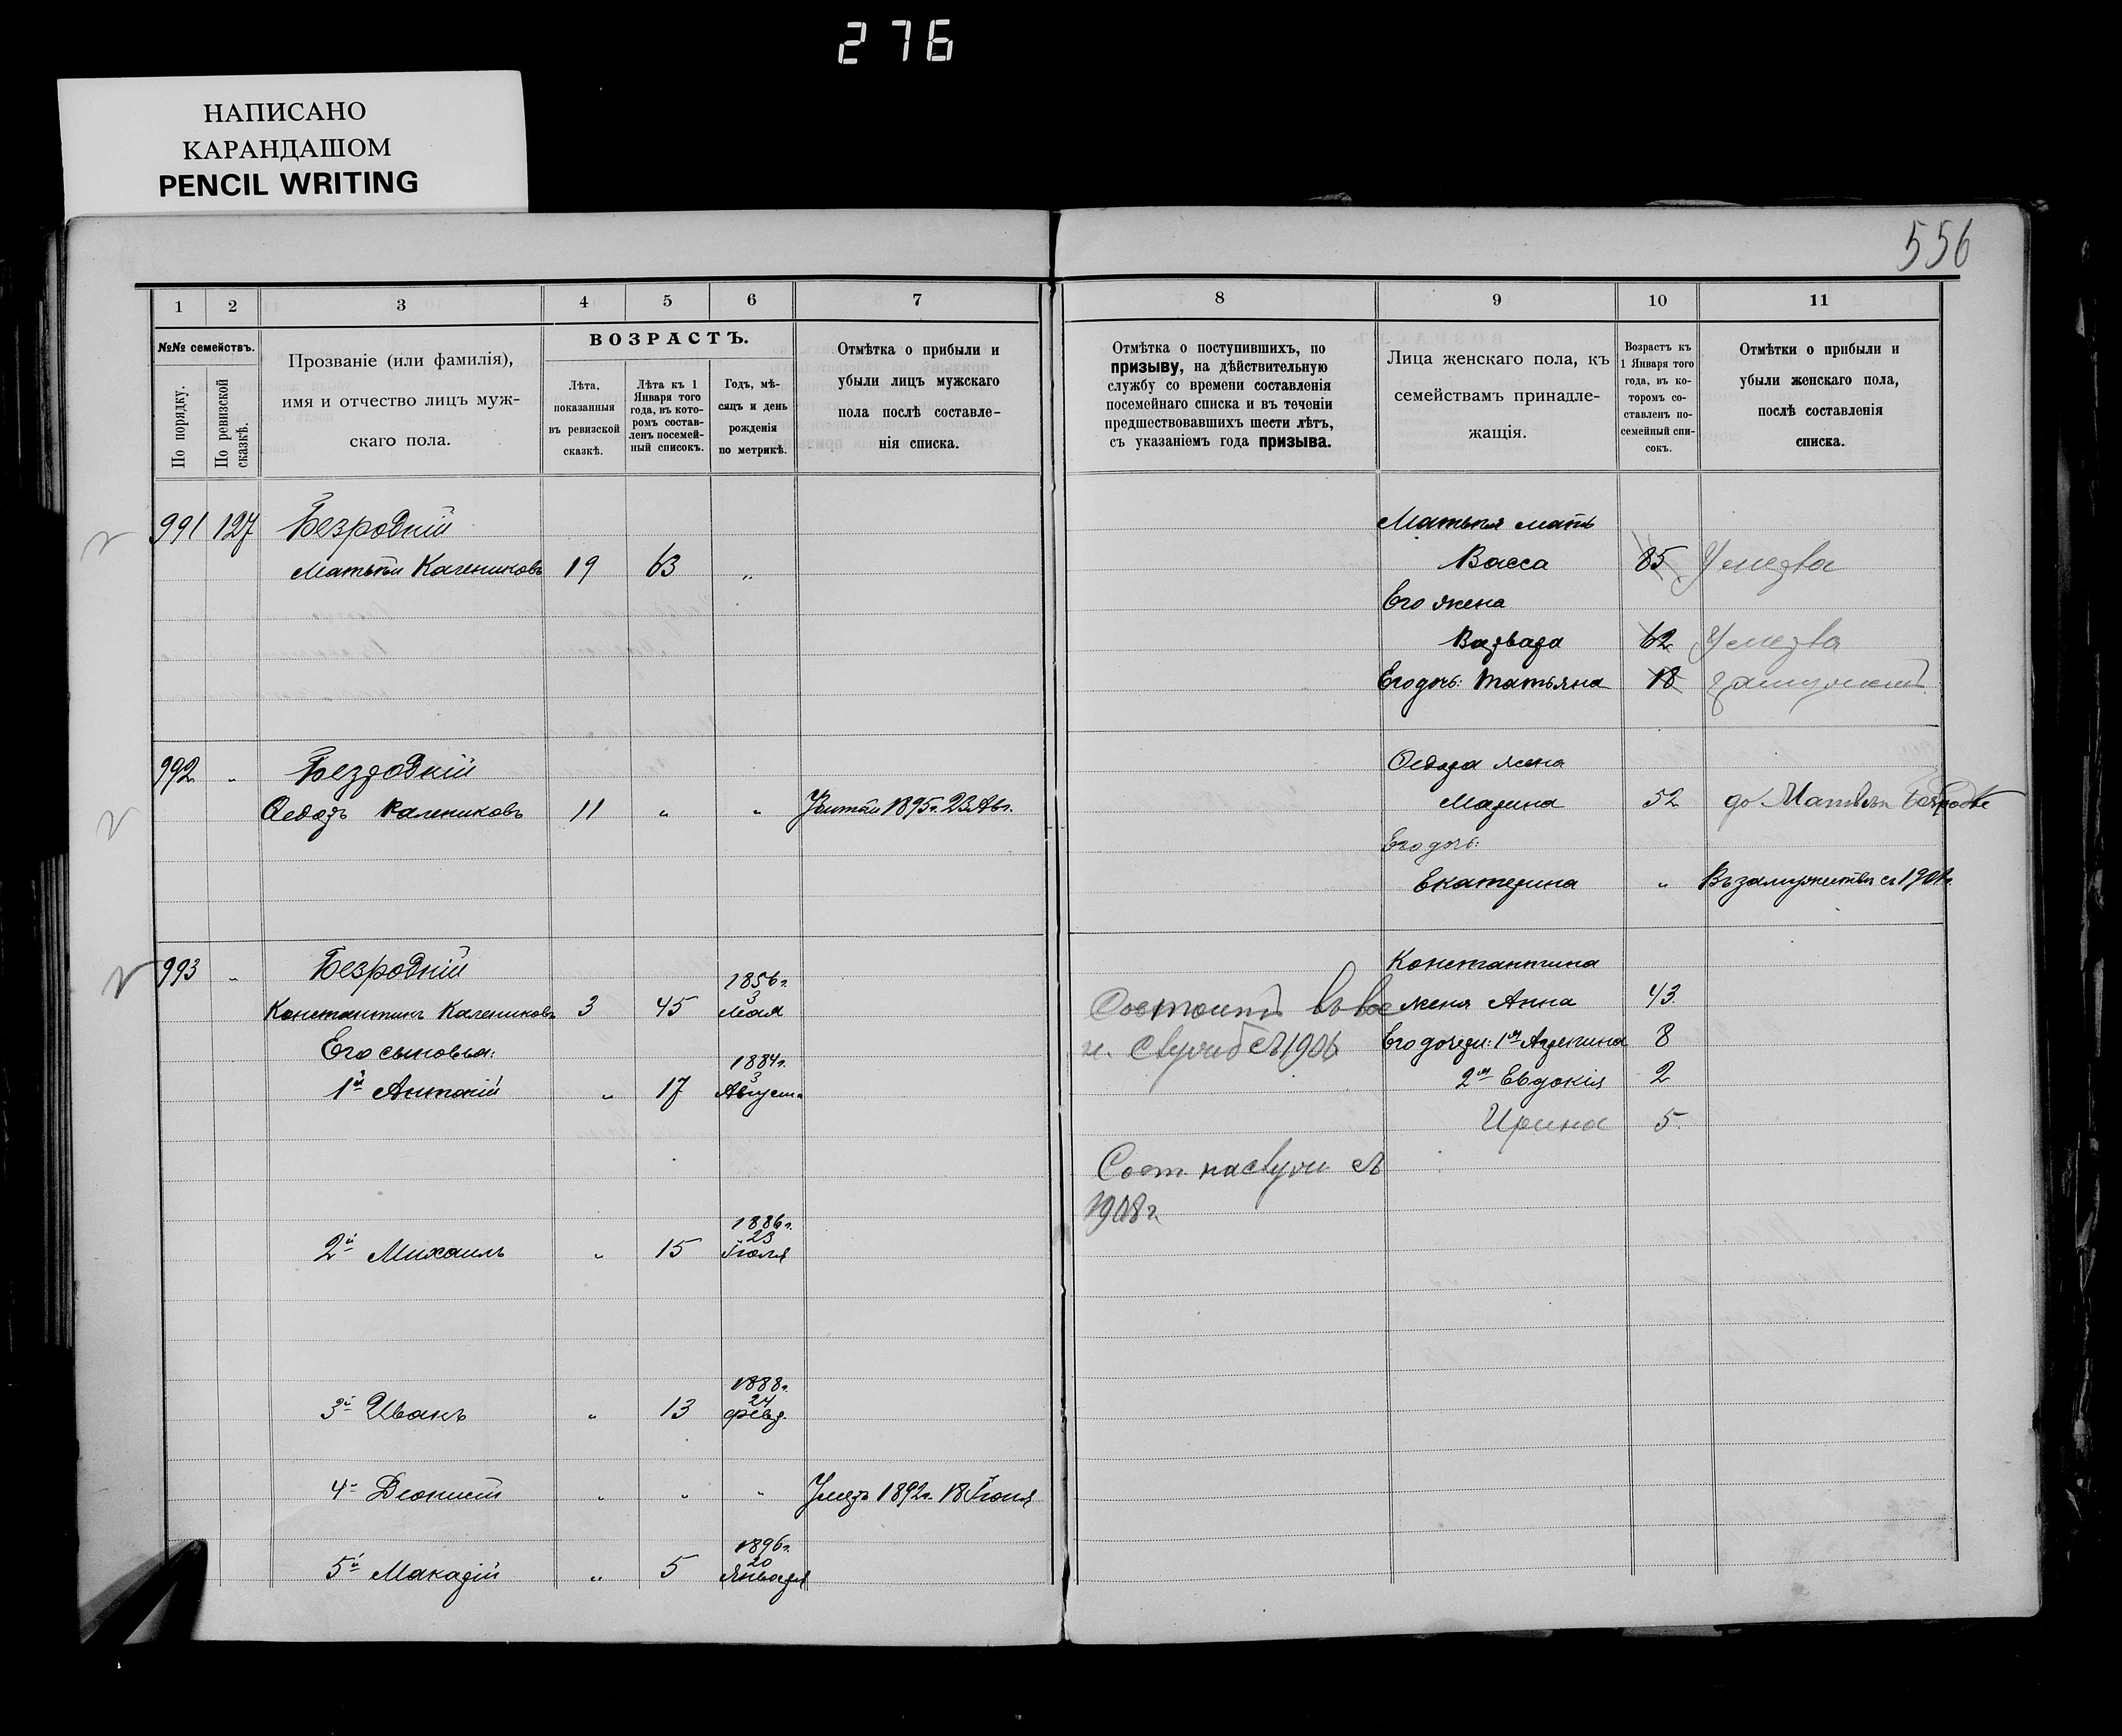 276
НАПИСАНО
КАРАНДАШОМ
PENCIL WRITING
556
1 2 3 4 5 6 7
№№ семействъ.
По порядку.
По ревизской сказкѣ.
Прозваніе (или фамилія),
имя и отчество лицъ муж-
скаго пола.
ВОЗРАСТЪ.
Лѣта,
показанныя
въ ревизской
сказкѣ.
Лѣта къ 1
Января того
года, въ кото-
ромъ состав-
ленъ посемей-
ный списокъ.
Годъ, мѣ-
сяцъ и день
рожденія
по метрикѣ.
Отмѣтка о прибыли и
убыли лицъ мужскаго
пола послѣ составле-
нія списка.
991 127 Безродній
Матвѣй Калениковъ 19 63 "
992 " Безродній
Ѳедоръ Калениковъ 11 " " 1895г. 23 Авг.
993 " Безродній
Константинъ Калениковъ 3 45 1856г. 3 Мая
Его сыновья:
1й Антоній " 17 1884г. 3 Августа
2й Михаилъ " 15 1886г. 23 Іюля
3й Иванъ " 13 1888г. 24 Февр.
4й " " " Умеръ 1892г. 18 Іюня
5й Макарій " 5 1896г. 20 Января
8 9 10 11
Отмѣтка о поступившихъ, по
призыву, на дѣйствительную
службу со времени составленія
посемейнаго списка и въ теченіи
предшествовавшихъ шести лѣтъ,
съ указаніемъ года призыва.
Лица женскаго пола, къ
семействамъ принадле-
жащія.
Возрастъ къ
1 Января того
года, въ ко-
торомъ со-
ставленъ по-
семейный спи-
сокъ.
Отмѣтки о прибыли и
убыли женскаго пола,
послѣ составленія
списка.
Матвѣя мать
Васса 85 Умерла
Его жена
Варвара 62 Умерла
Его дочь: Татьяна 18 замужемъ
Ѳедора жена
Марина 52 до Матвѣя
Его дочь:
Екатерина " Въ замужествѣ съ 1901г.
Константина
Состоитъ въ жена Анна 43
съ 1906 Его дочери: 1я Агрепина 8
2я Евдокія 2
Ирина 5
Сост. на съ
1908г.